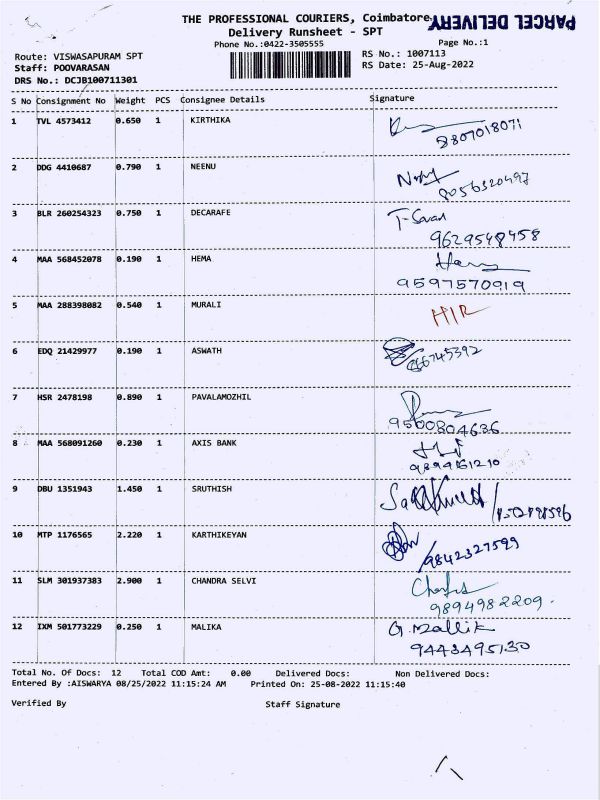 PARCEL DELIVERY
THE PROFESSIONAL COURIERS, Coimbatore
Delivery Runsheet - SPT
Phone No.:0422-3505555 Page No.:1
Route: VISWASAPURAM SPT RS No.: 1007113
Staff: POOVARASAN RS Date: 25-Aug-2022
DRS No.: DCJB100711301
S No Consignment No Weight PCS Consignee Details Signature
1 TVL 4573412 0.650 1 KIRTHIKA
8807018071
2 DDG 4410687 0.790 1 NEENU
8056320497
3 BLR 260254323 0.750 1 DECARAFE
9629548458
4 MAA 568452078 0.190 1 HEMA
9597570919
5 MAA 288398082 0.540 1 MURALI
HIR
6 EDQ 21429977 0.190 1 ASWATH
7 HSR 2478198 0.890 1 PAVALAMOZHIL
9500804636
8 MAA 568091260 0.230 1 AXIS BANK
9894161210
9 DBU 1351943 1.450 1 SRUTHISH
10 MTP 1176565 2.220 1 KARTHIKEYAN
9842327599
11 SLM 301937383 2.900 1 CHANDRA SELVI
9894982209.
12 IXM 501773229 0.250 1 MALIKA
G. Mallik
9443495130
Total No. Of Docs: 12 Total COD Amt: 0.00 Delivered Docs: Non Delivered Docs:
Entered By :AISWARYA 08/25/2022 11:15:24 AM Printed On: 25-08-2022 11:15:40
Verified By Staff Signature